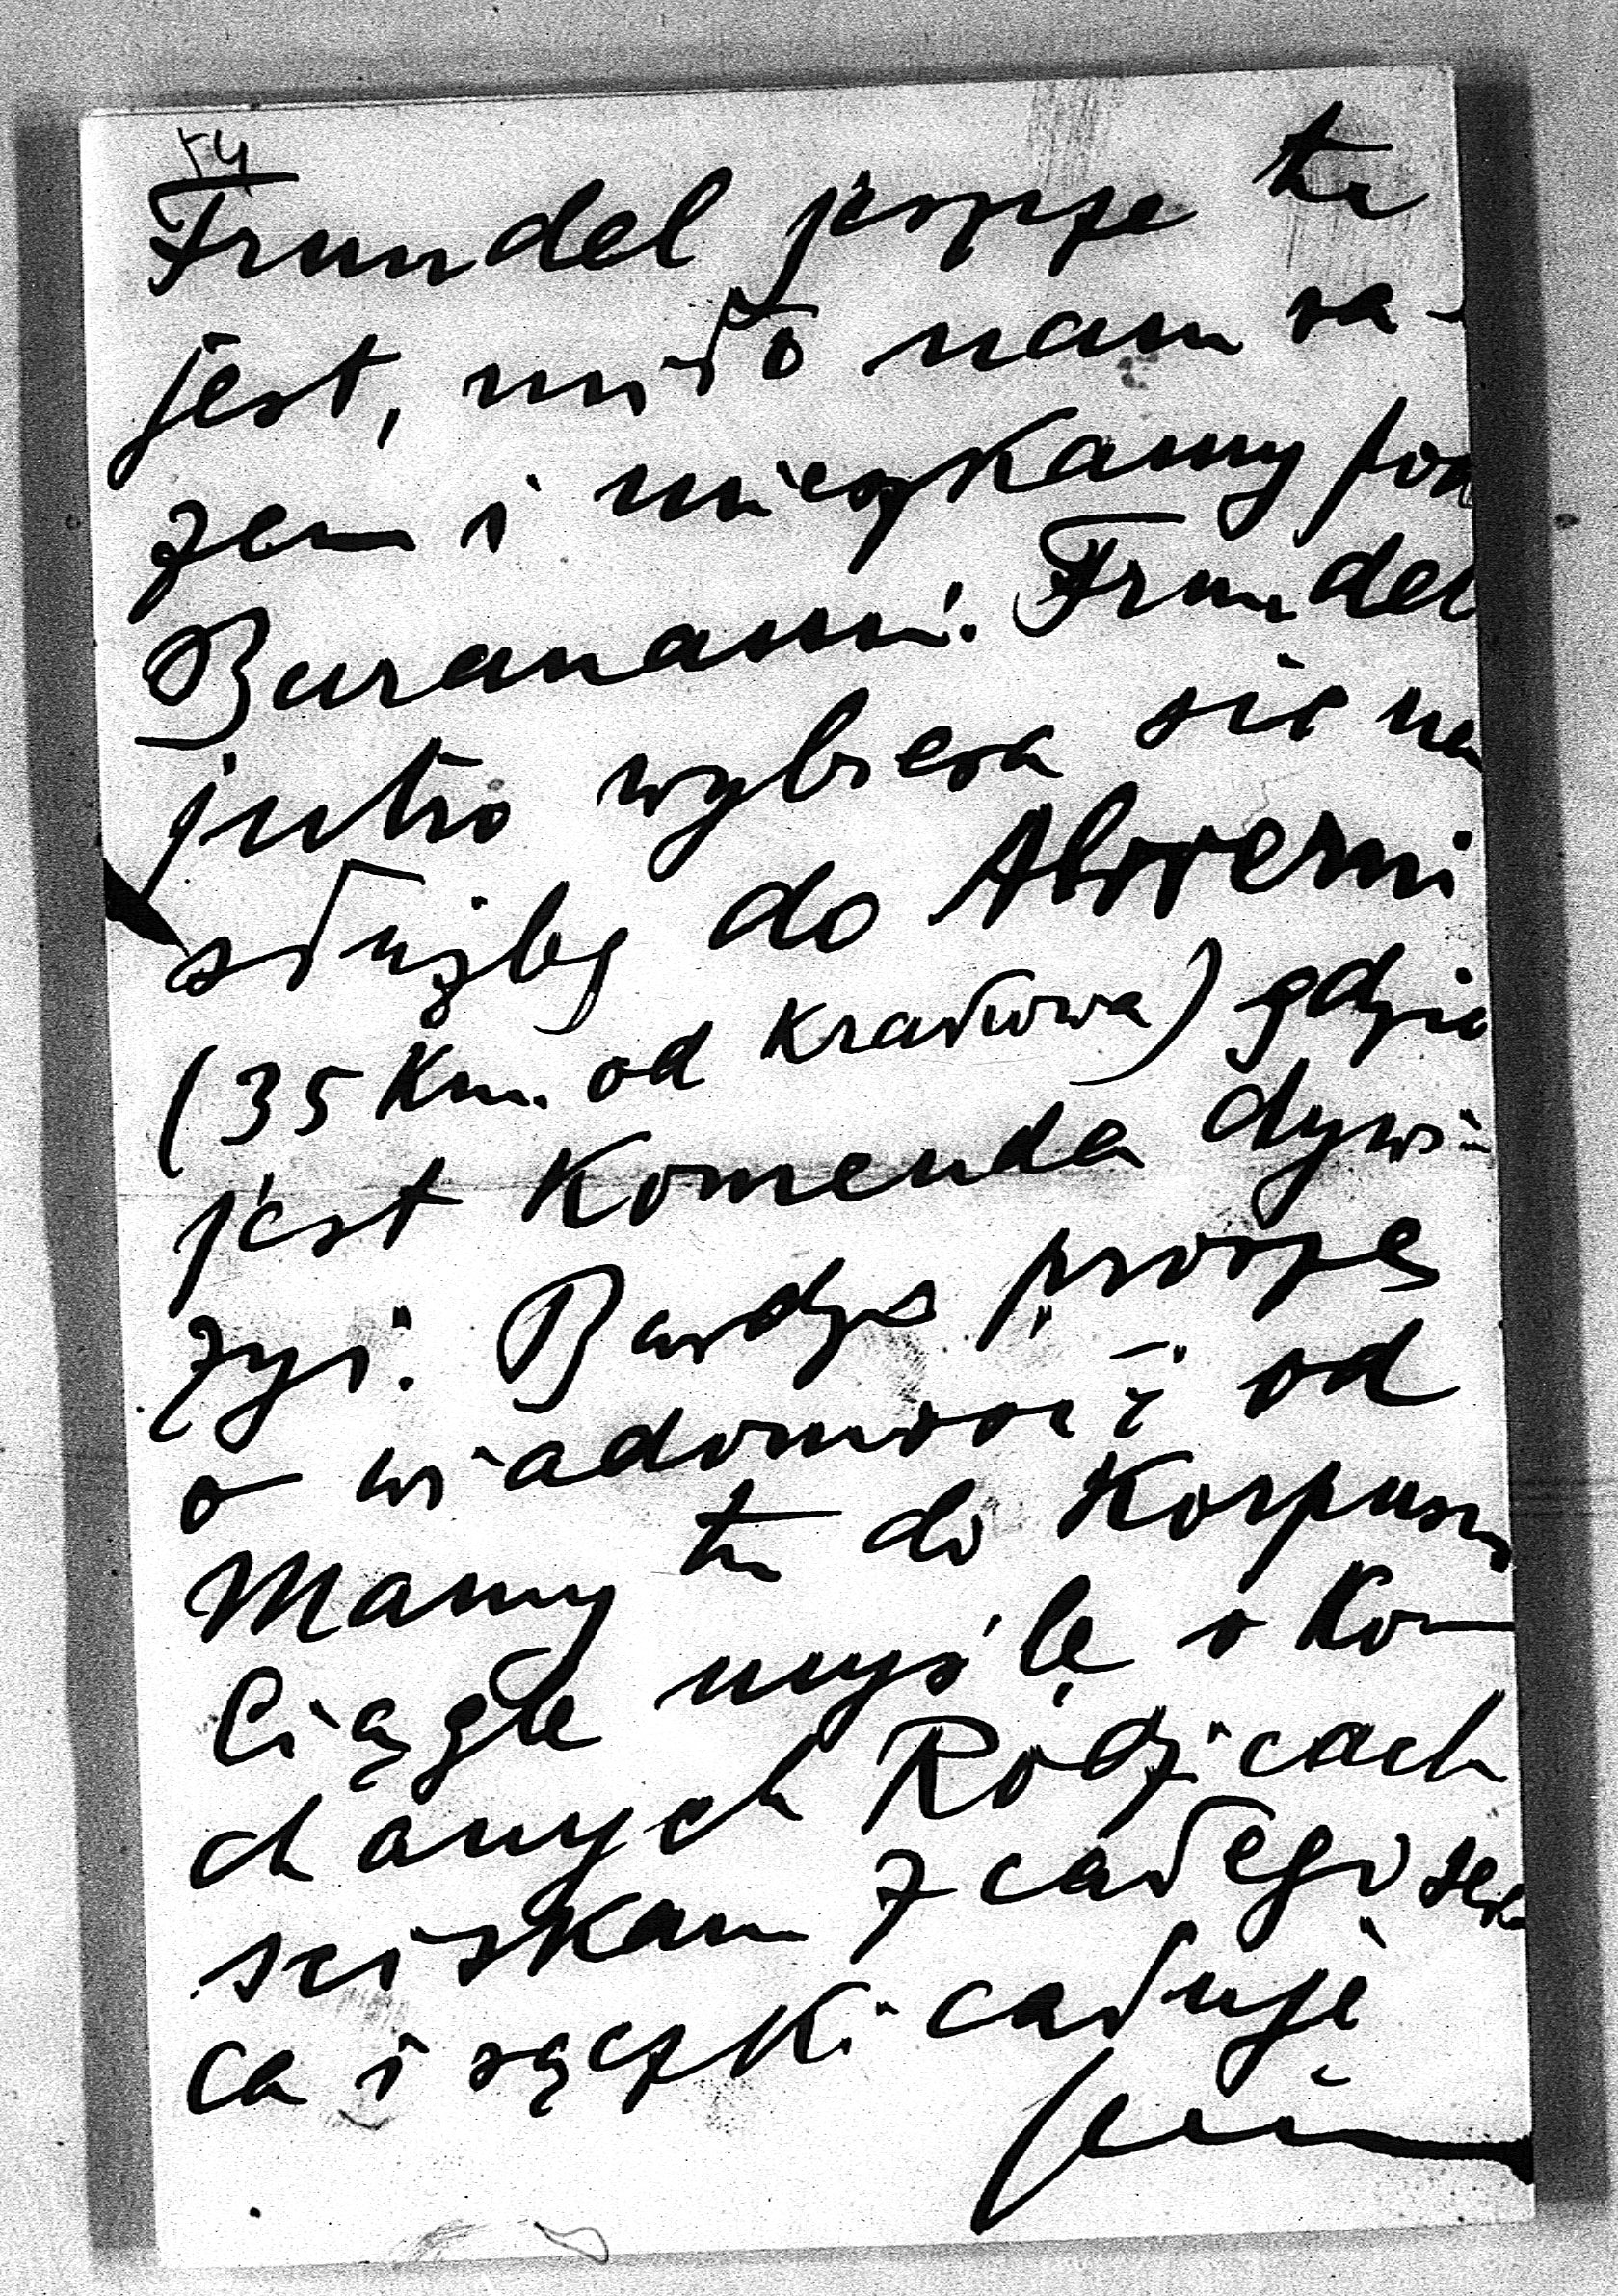 54
Frundel jeszcze tu
jest, miło nam ra-
zem i mieszkamy pod
Baranami. Frundel
jutro wybiera się na
służbę do Alwerni
(35 Km. od Krakowa) gdzie
jest Komenda dywi-
zyi. Bardzo proszę
o wiadomość od
Mamy tu do Korpusu
Ciągle myślę o Ko-
chanych Rodzicach
sciskam z całego ser
ca i rączki całuję